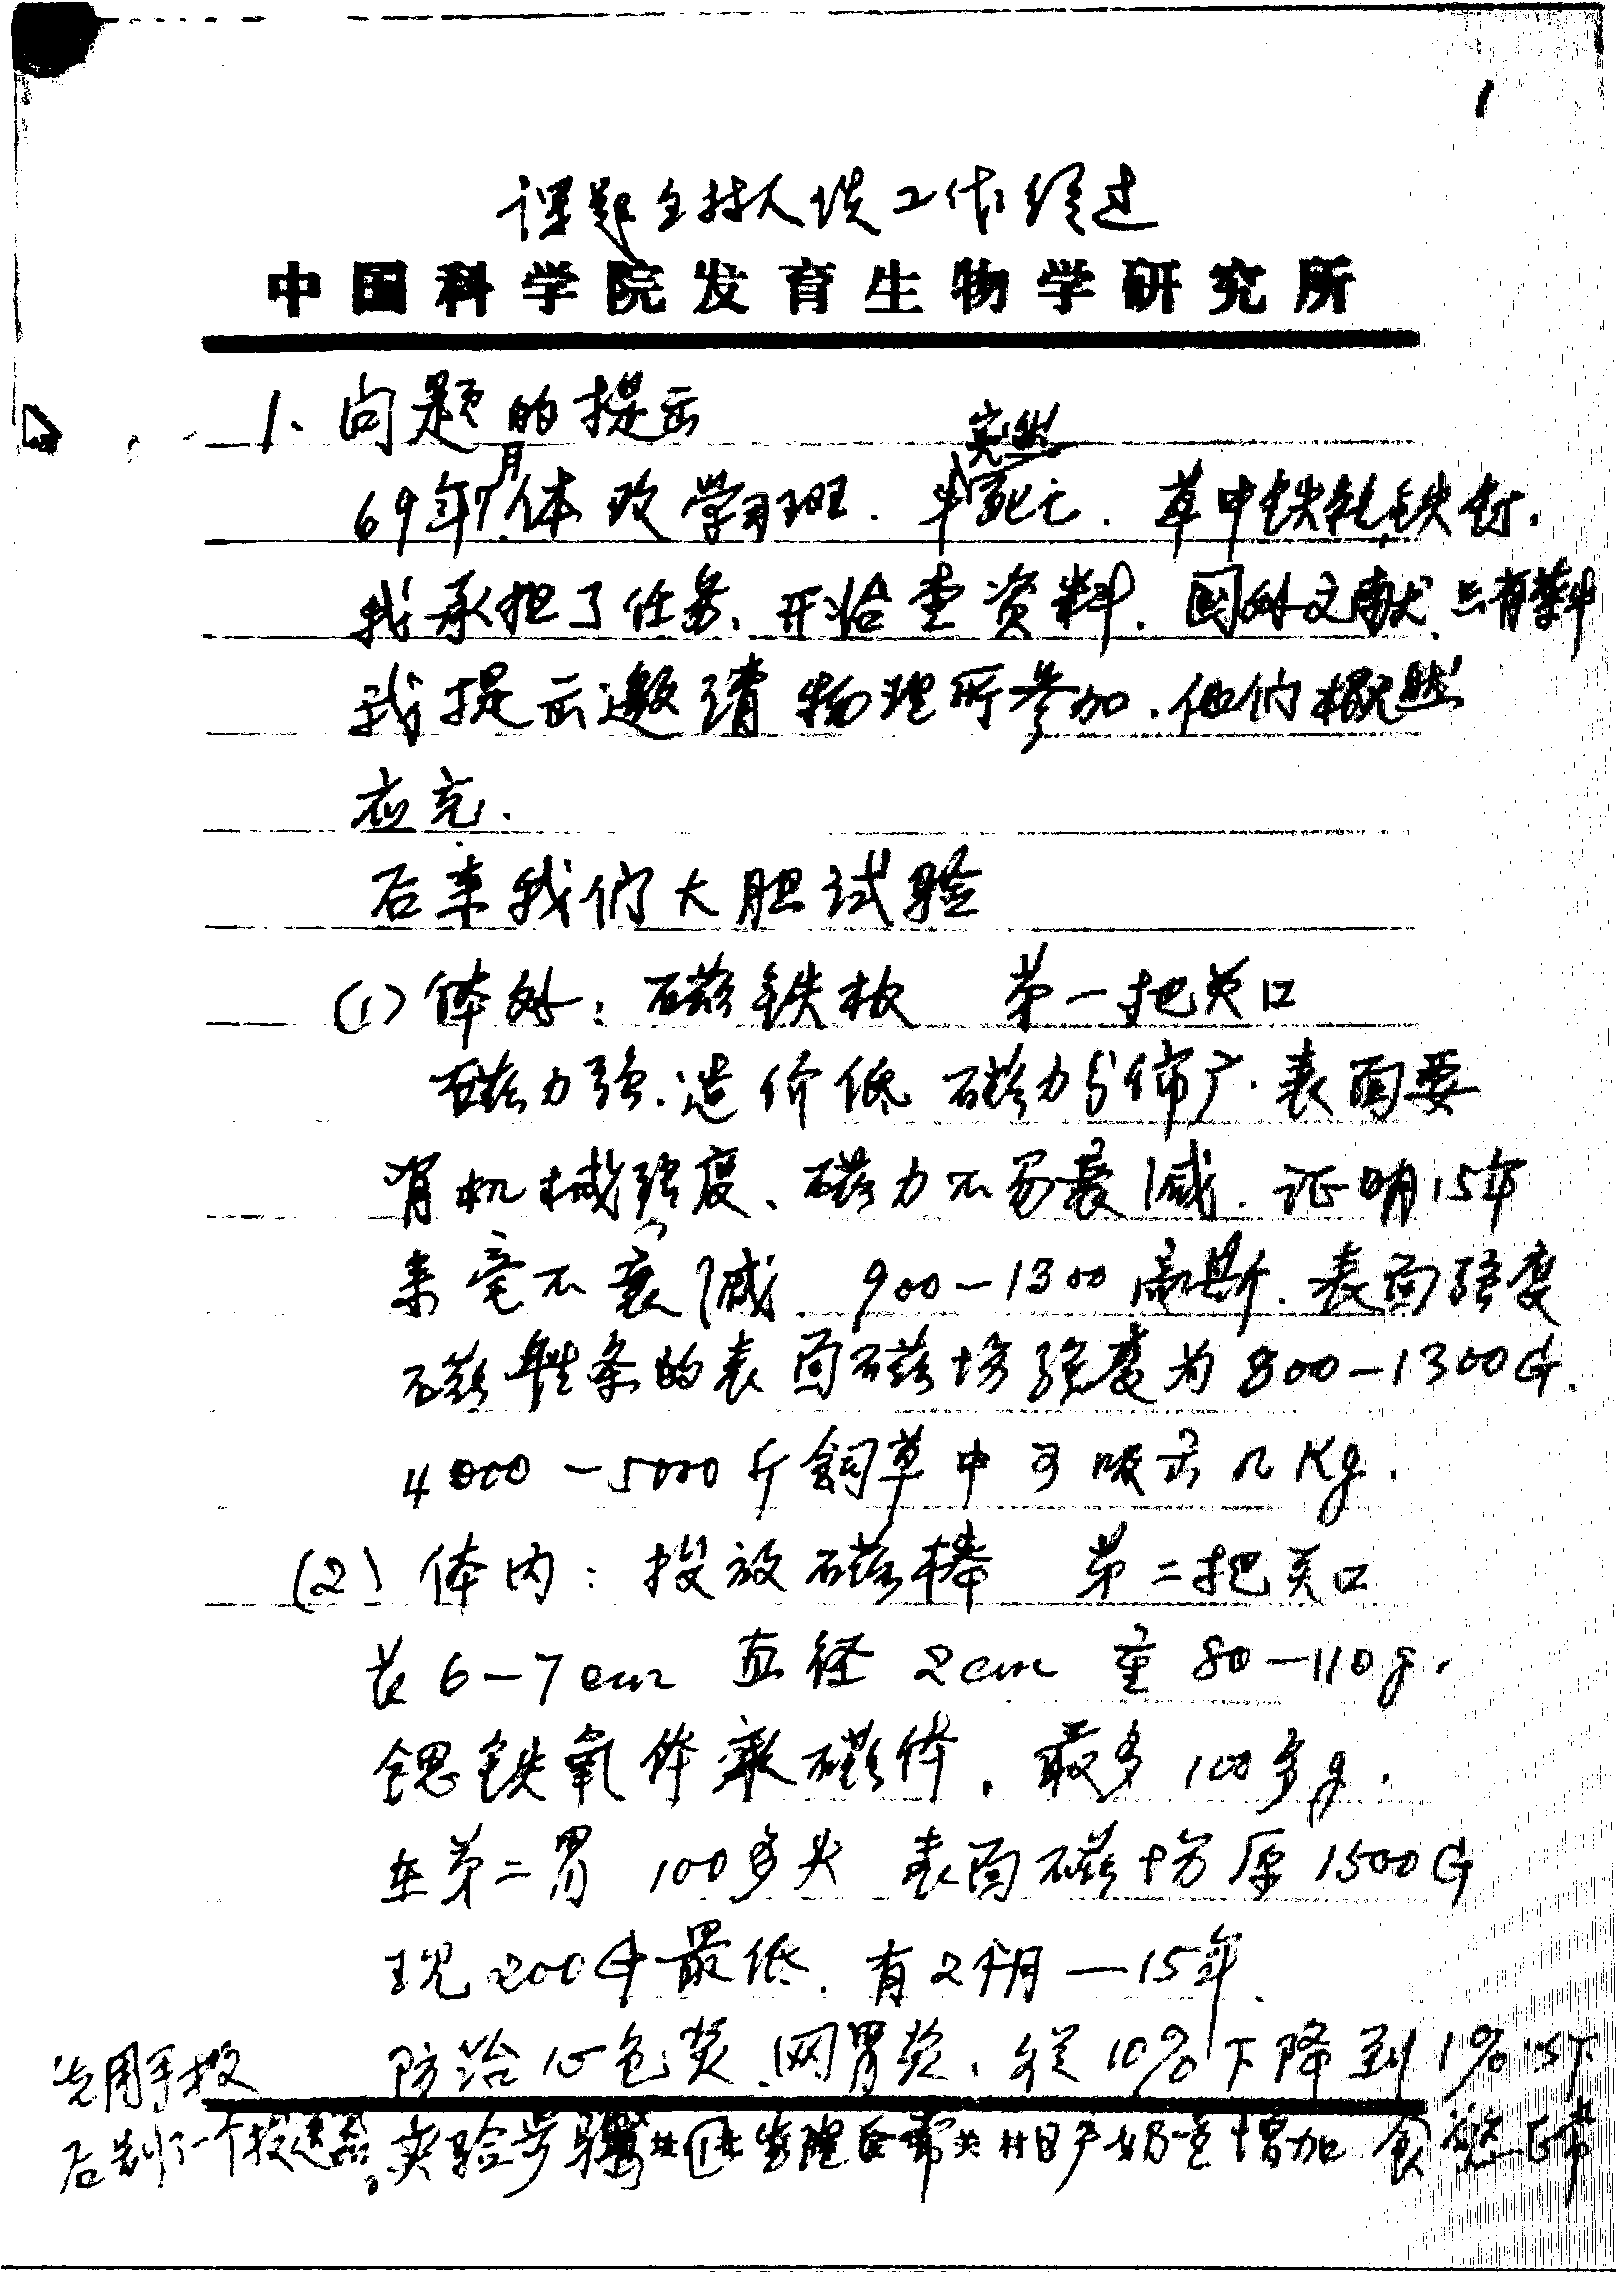 1
课题主持人谈工作经过
中国科学院发育生物学研究所
1. 问题的提出
69年7月体改学习班. 牛突然死亡. 草中铁丝铁钉.
我承担了任务. 开始查资料. 国外文献上有
我提出邀请物理所参加. 他们慨然
应允.
后来我们大胆试验
(1) 体外: 磁铁板 第一把关口
磁力强. 造价低 磁力分佈广. 表面要
有机械强度、磁力不易衰减. 证明15年
来毫不衰减 900-1300高斯. 表面强度
磁性条的表面磁场强度为800-1300G.
4000-5000斤饲草中可吸出几Kg.
(2) 体内: 投放磁棒 第二把关口
长6-7cm 直径2cm 重80-110g.
锶铁氧体永磁体. 最多100多g.
在第二胃 100多头 表面磁场原1500G
现200G最低. 有2个月—15年.
防治心包炎、网胃炎. 从10%下降到1%以下
先用手投
后制了一个投送器.
实验步骤 生理正常 日产奶量增加 食慾正常